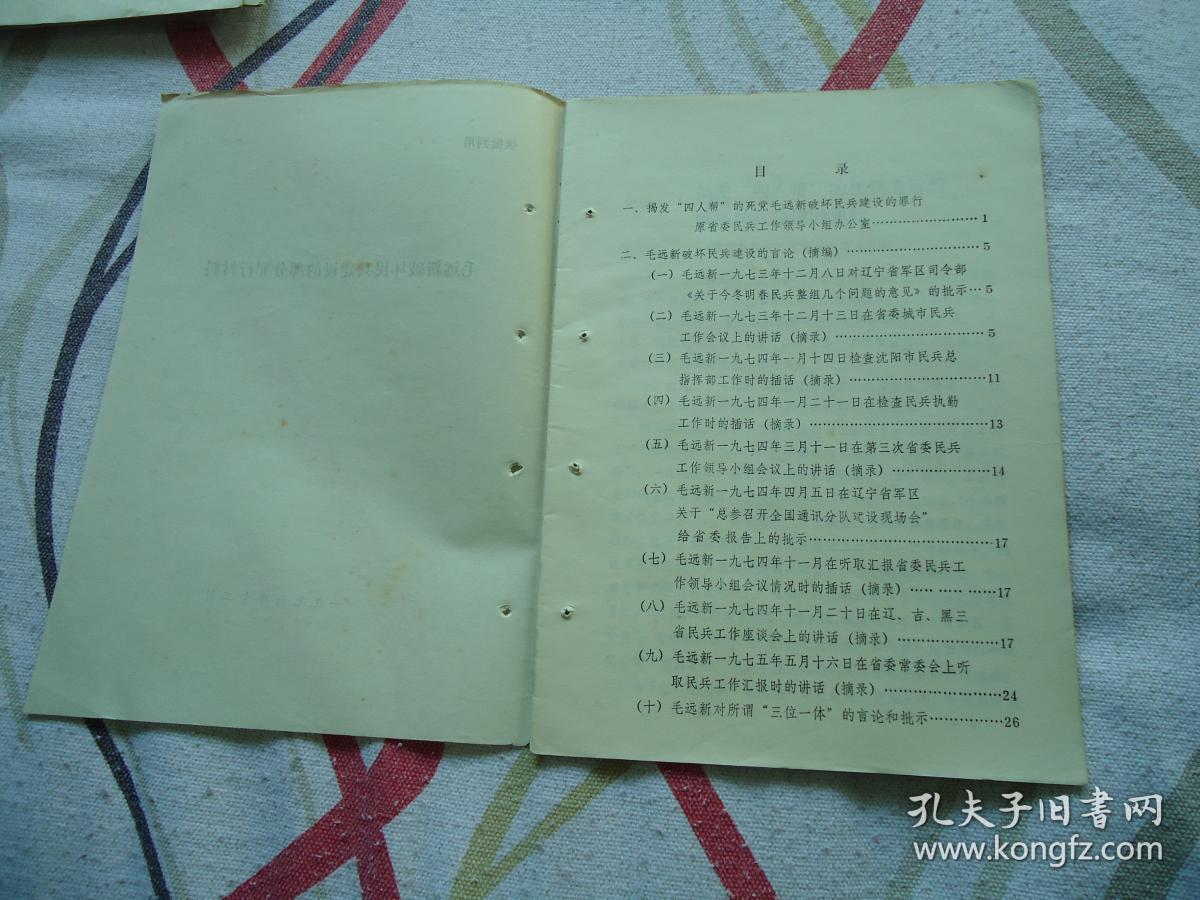 供批判用
毛远新破坏民兵建设的部分罪行材料
目 录
一、揭发“四人帮”的死党毛远新破坏民兵建设的罪行
原省委民兵工作领导小组办公室……………………1
二、毛远新破坏民兵建设的言论(摘编)……………………5
(一)毛远新一九七三年十二月八日对辽宁省军区司令部
《关于今冬明春民兵整组几个问题的意见》的批示…5
(二)毛远新一九七三年十二月十三日在省委城市民兵
工作会议上的讲话(摘录)……………………………5
(三)毛远新一九七四年一月十四日检查沈阳市民兵总
指挥部工作时的插话(摘录)…………………………11
(四)毛远新一九七四年一月二十一日在检查民兵执勤
工作时的插话(摘录)…………………………………13
(五)毛远新一九七四年三月十一日在第三次省委民兵
工作领导小组会议上的讲话(摘录)…………………14
(六)毛远新一九七四年四月五日在辽宁省军区
关于“总参召开全国通讯分队建设现场会”
给省委报告上的批示…………………………………17
(七)毛远新一九七四年十一月在听取汇报省委民兵工
作领导小组会议情况时的插话(摘录)………………17
(八)毛远新一九七四年十一月二十日在辽、吉、黑三
省民兵工作座谈会上的讲话(摘录)…………………17
(九)毛远新一九七五年五月十六日在省委常委会上听
取民兵工作汇报时的讲话(摘录)……………………24
(十)毛远新对所谓“三位一体”的言论和批示……………26
孔夫子旧书网
www.kongfz.com